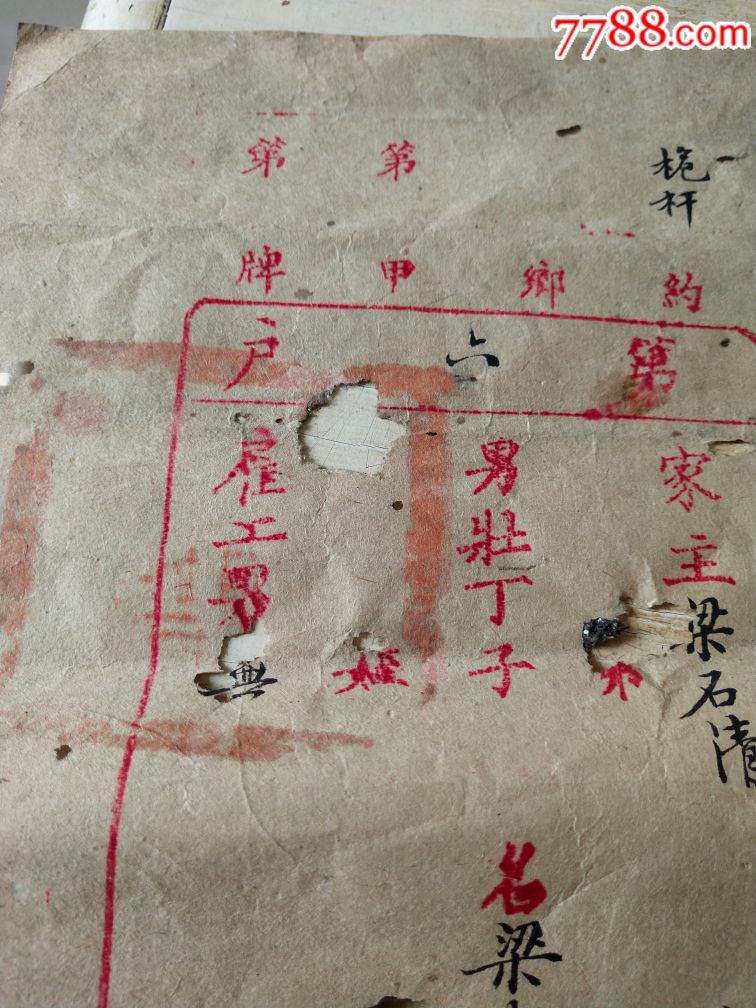 7788.com
桅杆
約
鄉
第甲
第牌
第六戶
家主梁石清
弟
男壯丁子名梁
姪
雇工男無